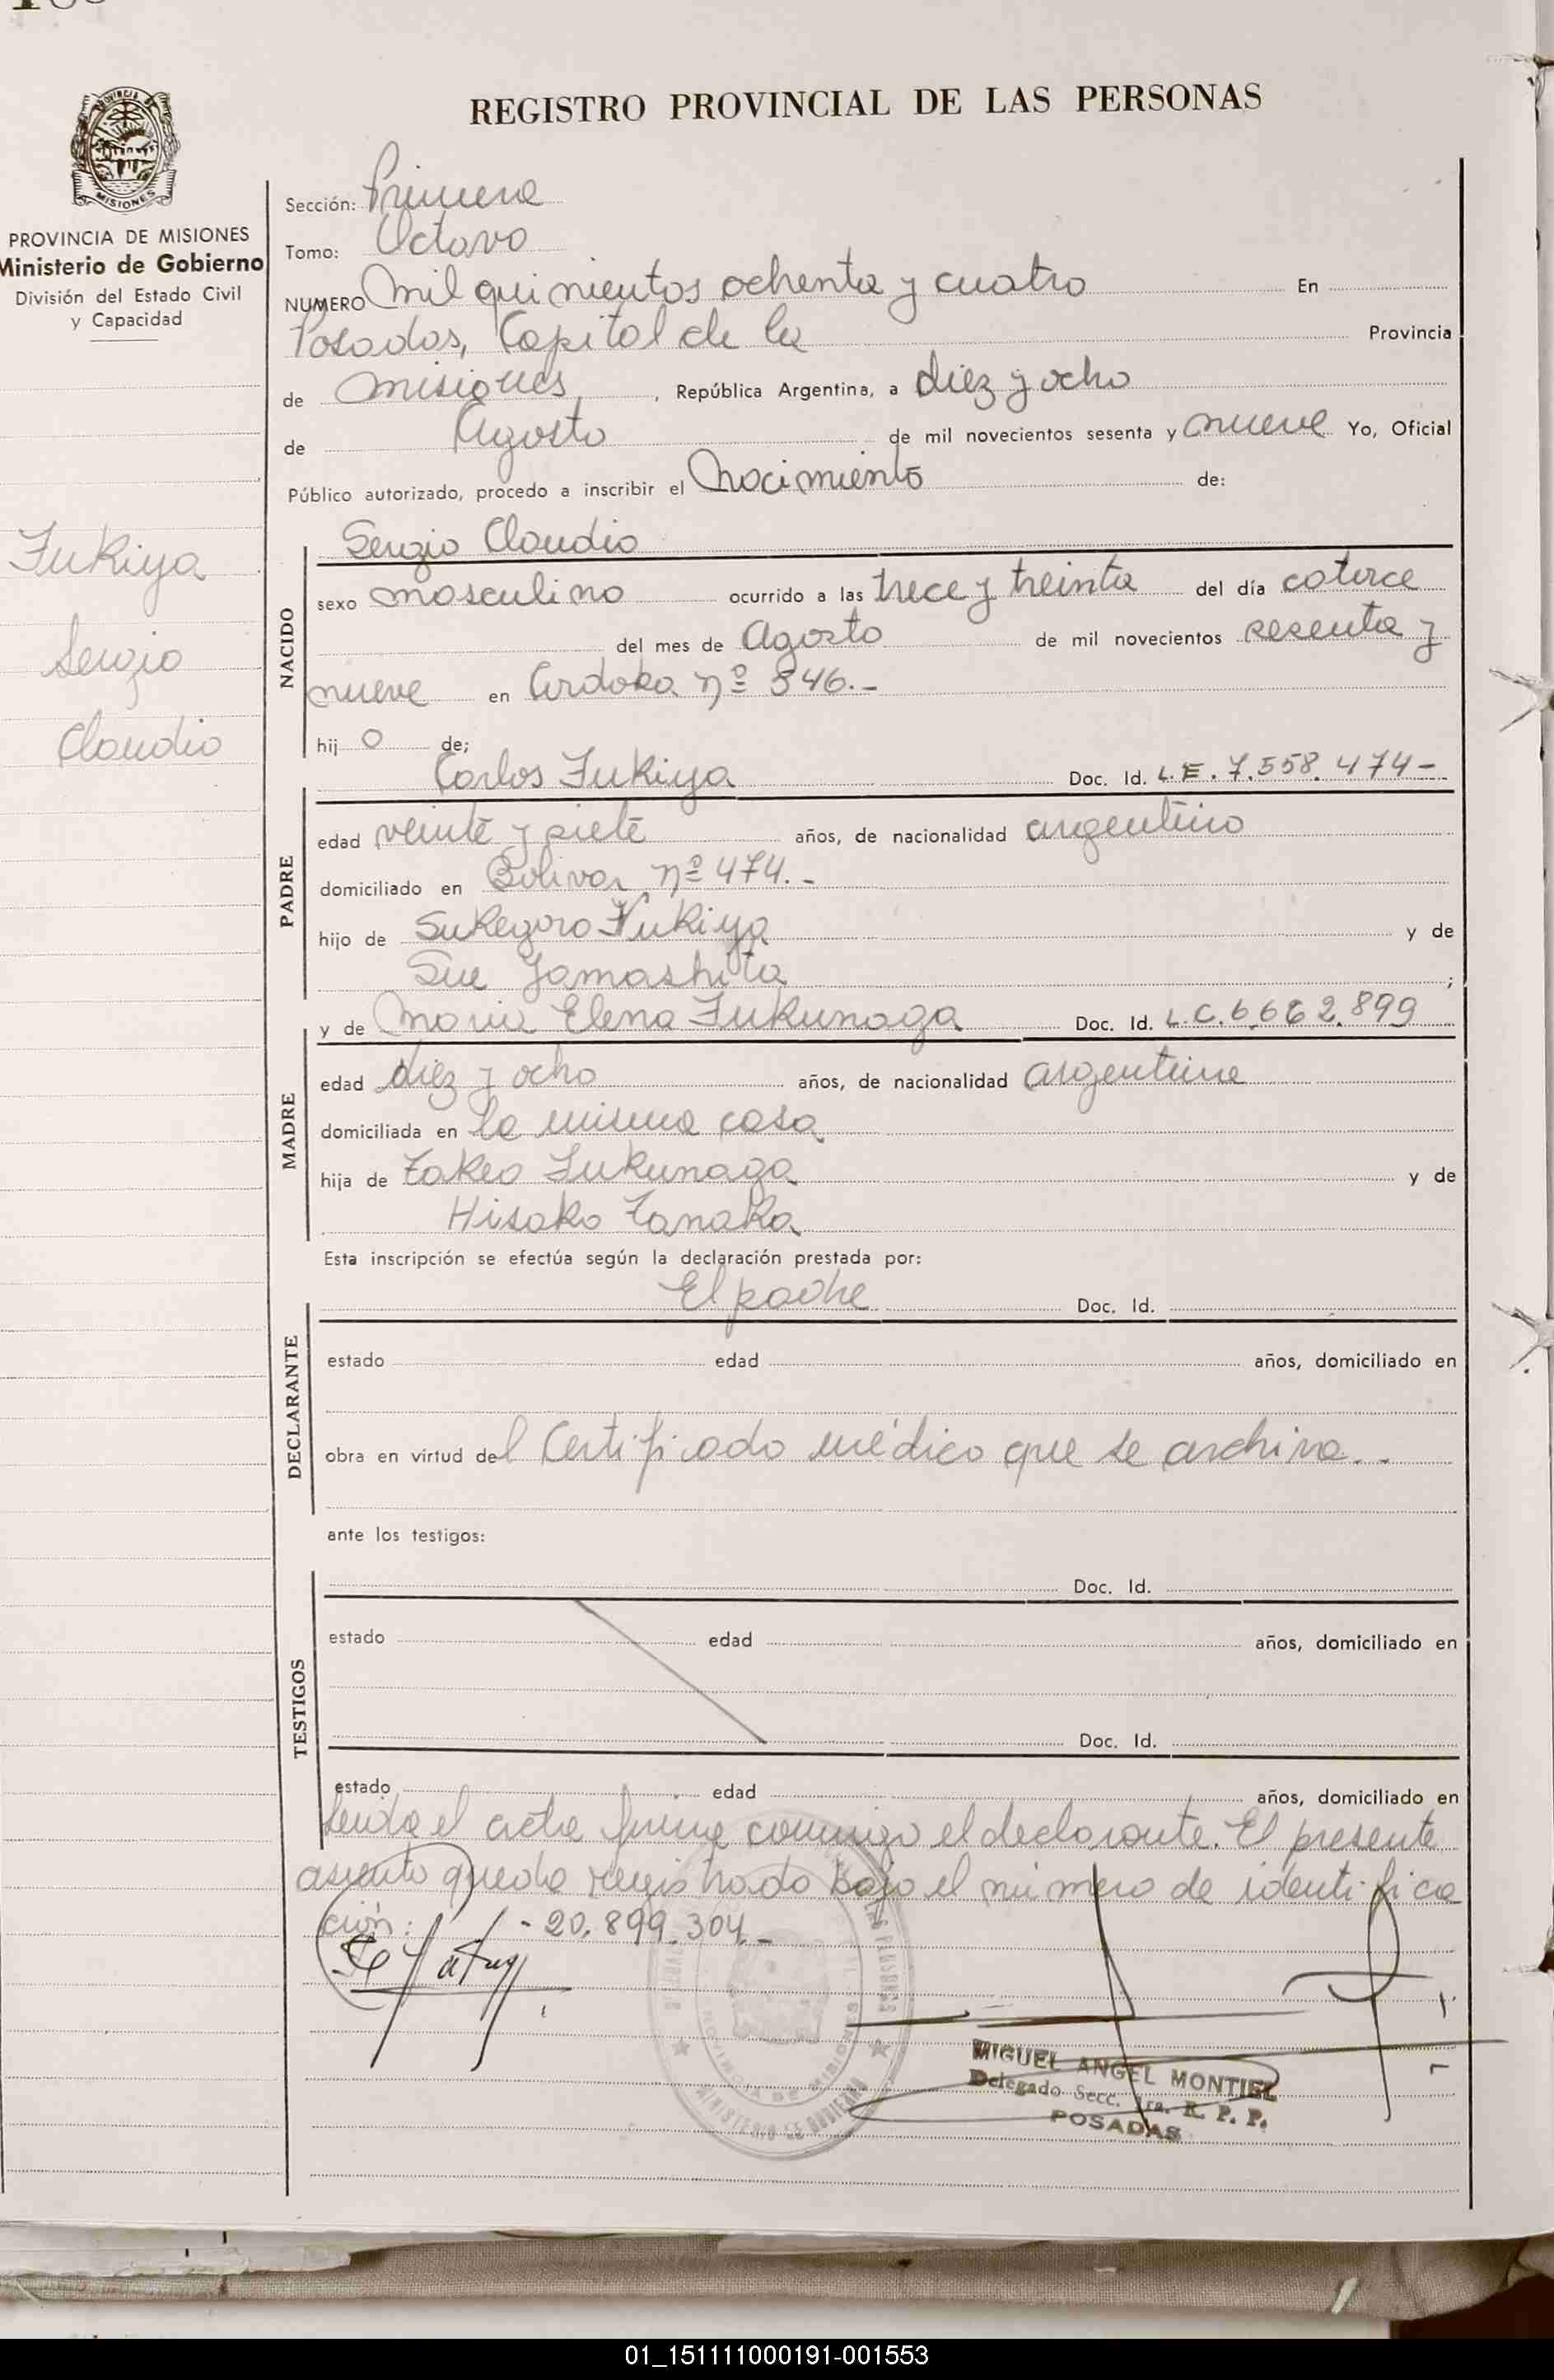 REGISTRO PROVINCIAL DE LAS PERSONAS
PROVINCIA DE MISIONES
Ministerio de Gobierno
División del Estado Civil
y Capacidad
Fukiya
Sergio
Claudio
Sección: Primera
Tomo: Octavo
NUMERO mil quinientos ochenta y cuatro En
Posadas, Capital de la Provincia
de misiones, República Argentina, a diez y ocho
de Agosto de mil novecientos sesenta y nueve Yo, Oficial
Público autorizado, procedo a inscribir el nacimiento de:
NACIDO
Sergio Claudio
sexo masculino ocurrido a las trece y treinta del día catorce
del mes de Agosto de mil novecientos sesenta y
nueve en Cordoba nº 846.-
hij o de;
PADRE
Carlos Fukiya Doc. Id. L.E. 7.558.474-
edad veinte y siete años, de nacionalidad argentino
domiciliado en Bolivar nº 474.-
hijo de Sukegoro Fukiya y de
Sue Yamashita ;
MADRE
y de Maria Elena Fukunaga Doc. Id. L.C. 6.662.899
edad diez y ocho años, de nacionalidad argentina
domiciliada en la misma casa
hija de Takeo Fukunaga y de
Hisako Tanaka
Esta inscripción se efectúa según la declaración prestada por:
DECLARANTE
El padre Doc. Id.
estado edad años, domiciliado en
obra en virtud del Certificado médico que se archiva..
ante los testigos:
TESTIGOS
Doc. Id.
estado edad años, domiciliado en
Doc. Id.
estado edad años, domiciliado en
Leida el acta firma conmigo el declarante. El presente
asiento queda registrado bajo el número de identifica
ción: - 20.899.304.-
MINISTERIO DE GOBIERNO
PROVINCIA DE MISIONES
MIGUEL ANGEL MONTIEL
Delegado Secc. 1ra. R. P. P.
POSADAS
01_151111000191-001553